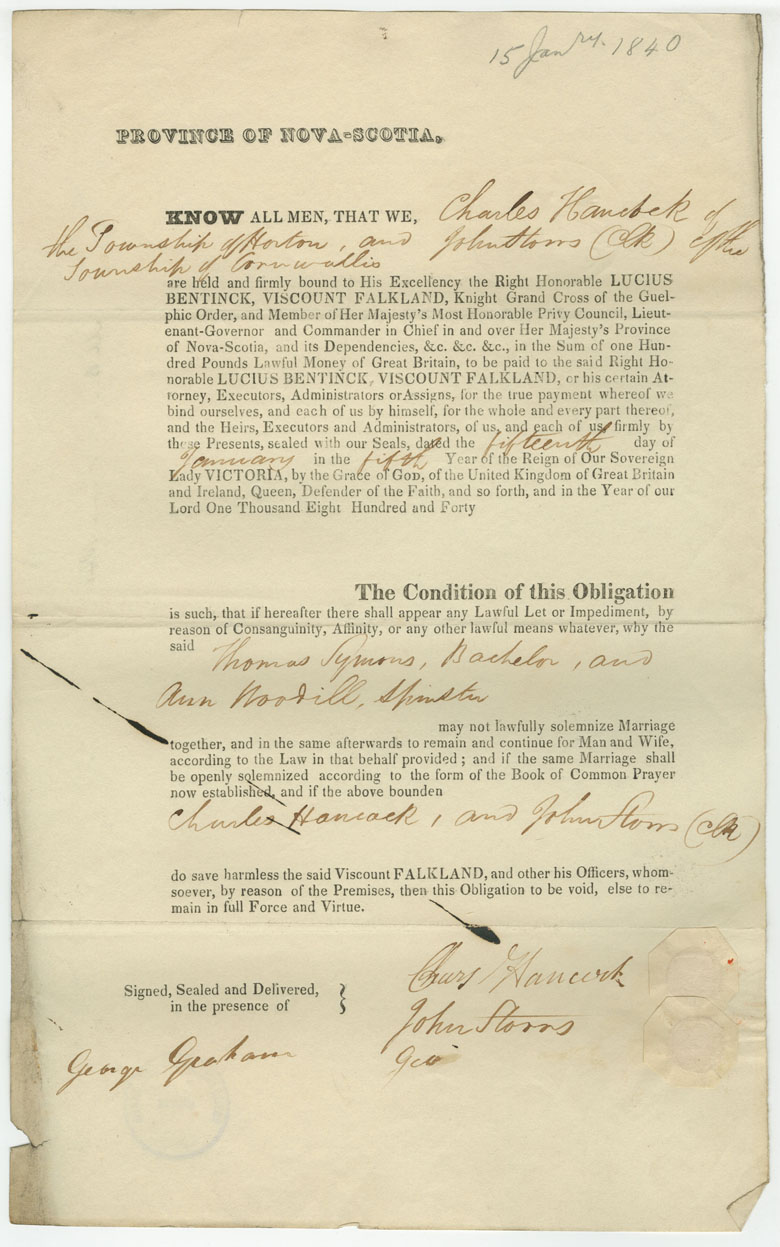 15 Janry. 1840
PROVINCE OF NOVA-SCOTIA.
KNOW ALL MEN, THAT WE, Charles Hancock of
the Township of Horton, and John Storrs (Clk) of the
Township of Cornwallis
are held and firmly bound to His Excellency the Right Honorable LUCIUS
BENTINCK, VISCOUNT FALKLAND, Knight Grand Cross of the Guel-
phic Order, and Member of Her Majesty's Most Honorable Privy Council, Lieut-
enant-Governor and Commander in Chief in and over Her Majesty's Province
of Nova-Scotia, and its Dependencies, &c. &c. &c., in the Sum of one Hun-
dred Pounds Lawful Money of Great Britain, to be paid to the said Right Ho-
norable LUCIUS BENTINCK, VISCOUNT FALKLAND, or his certain At-
torney, Executors, Administrators orAssigns, for the true payment whereof we
bind ourselves, and each of us by himself, for the whole and every part thereof,
and the Heirs, Executors and Administrators, of us, and each of us, firmly by
these Presents, sealed with our Seals, dated the fifteenth day of
January in the fifth Year of the Reign of Our Sovereign
Lady VICTORIA, by the Grace of GOD, of the United Kingdom of Great Britain
and Ireland, Queen, Defender of the Faith, and so forth, and in the Year of our
Lord One Thousand Eight Hundred and Forty
The Condition of this Obligation
is such, that if hereafter there shall appear any Lawful Let or Impediment, by
reason of Consanguinity, Affinity, or any other lawful means whatever, why the
said Thomas Symons, Bachelor, and
Ann Woodill, Spinster
may not lawfully solemnize Marriage
together, and in the same afterwards to remain and continue for Man and Wife,
according to the Law in that behalf provided; and if the same Marriage shall
be openly solemnized according to the form of the Book of Common Prayer
now established, and if the above bounden
Charles Hancock, and John Storrs (Clk)
do save harmless the said Viscount FALKLAND, and other his Officers, whom-
soever, by reason of the Premises, then this Obligation to be void, else to re-
main in full Force and Virtue.
Chars Hancock
Signed, Sealed and Delivered,
in the presence of
John Storrs
George Graham
Geo